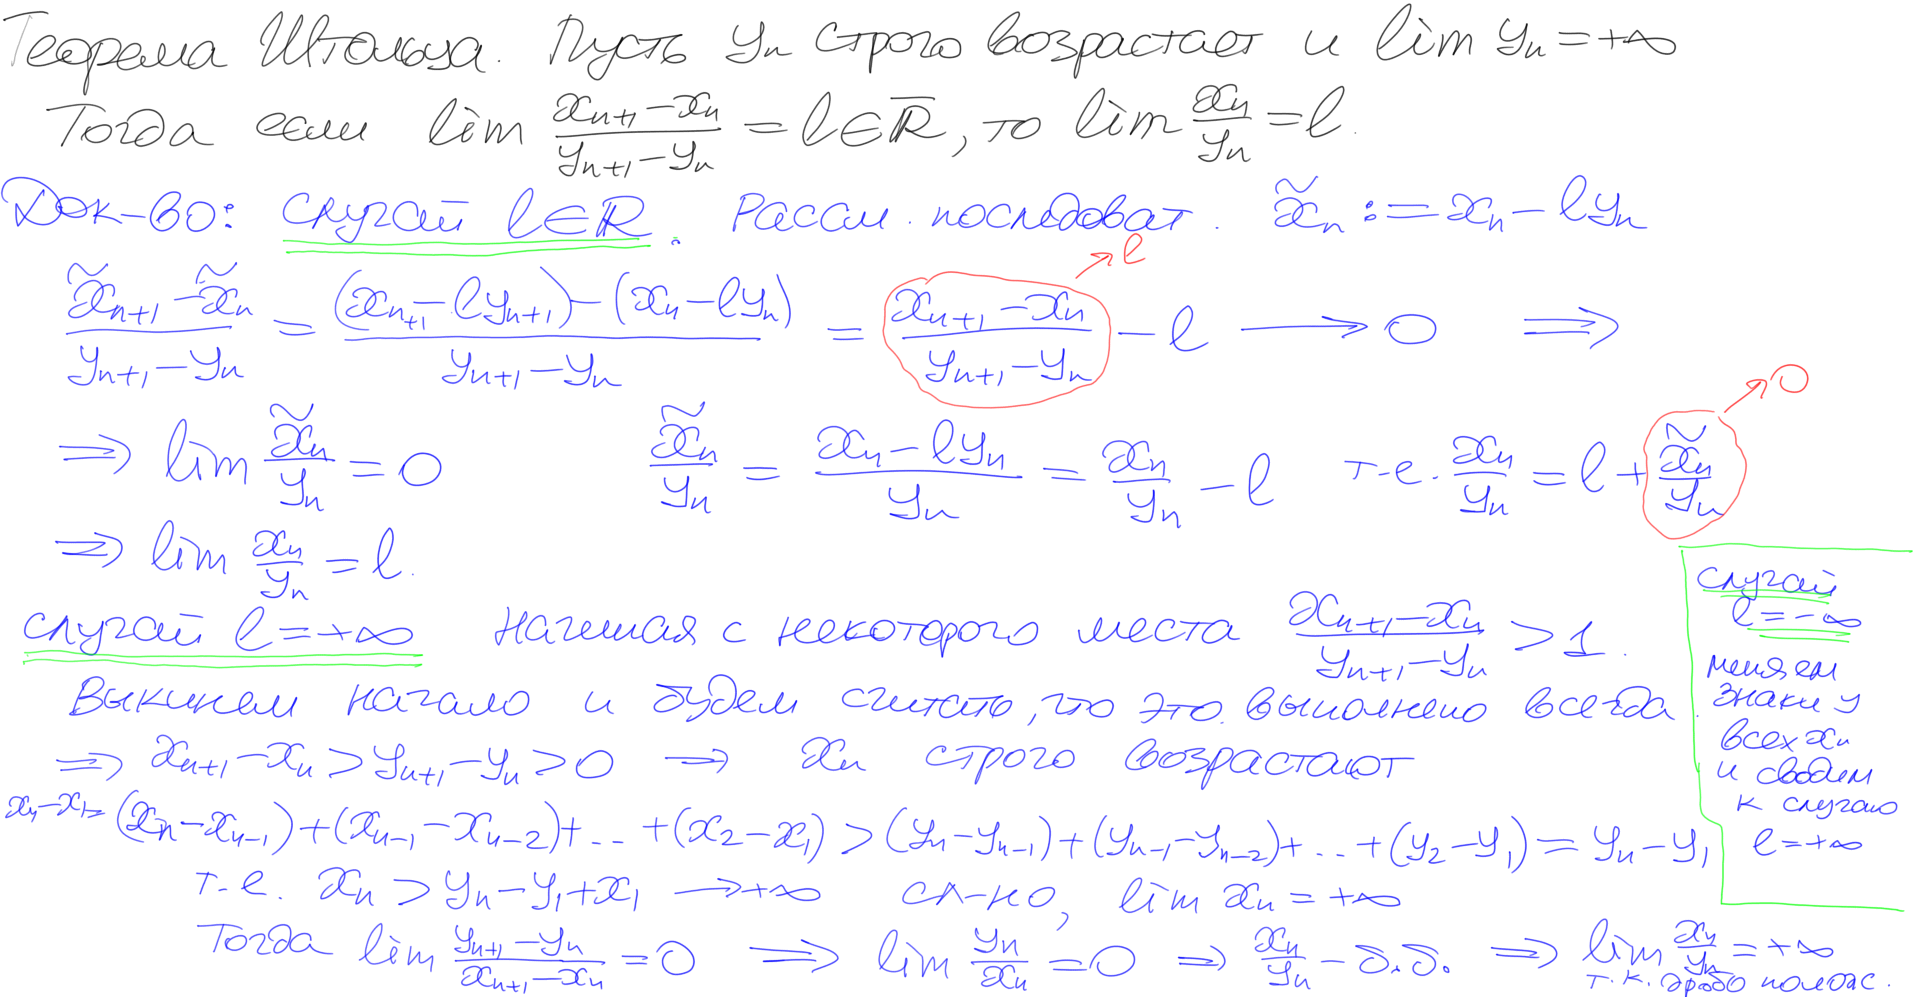 Теорема Штольца. Пусть yₙ строго возрастает и lim yₙ = +∞
Тогда если lim (xₙ₊₁ − xₙ)/(yₙ₊₁ − yₙ) = l ∈ R̅, то lim xₙ/yₙ = l.
Док-во: случай l ∈ ℝ. Рассм. последоват. x̃ₙ := xₙ − lyₙ
(x̃ₙ₊₁ − x̃ₙ)/(yₙ₊₁ − yₙ) = ((xₙ₊₁ − lyₙ₊₁) − (xₙ − lyₙ))/(yₙ₊₁ − yₙ) = (xₙ₊₁ − xₙ)/(yₙ₊₁ − yₙ) − l ⟶ 0 ⟹
→ l
⟹ lim x̃ₙ/yₙ = 0 x̃ₙ/yₙ = (xₙ − lyₙ)/yₙ = xₙ/yₙ − l т.е. xₙ/yₙ = l + x̃ₙ/yₙ
→ 0
⟹ lim xₙ/yₙ = l.
случай l = +∞ Начиная с некоторого места (xₙ₊₁ − xₙ)/(yₙ₊₁ − yₙ) > 1.
Выкинем начало и будем считать, что это выполнено всегда.
⟹ xₙ₊₁ − xₙ > yₙ₊₁ − yₙ > 0 ⟹ xₙ строго возрастают
xₙ − x₁ = (xₙ − xₙ₋₁) + (xₙ₋₁ − xₙ₋₂) + ... + (x₂ − x₁) > (yₙ − yₙ₋₁) + (yₙ₋₁ − yₙ₋₂) + ... + (y₂ − y₁) = yₙ − y₁
т.е. xₙ > yₙ − y₁ + x₁ → +∞ сл-но, lim xₙ = +∞
Тогда lim (yₙ₊₁ − yₙ)/(xₙ₊₁ − xₙ) = 0 ⟹ lim yₙ/xₙ = 0 ⟹ xₙ/yₙ − б.б. ⟹ lim xₙ/yₙ = +∞
т.к. дробь полож.
случай
l = −∞
меняем
знаки у
всех xₙ
и сводим
к случаю
l = +∞